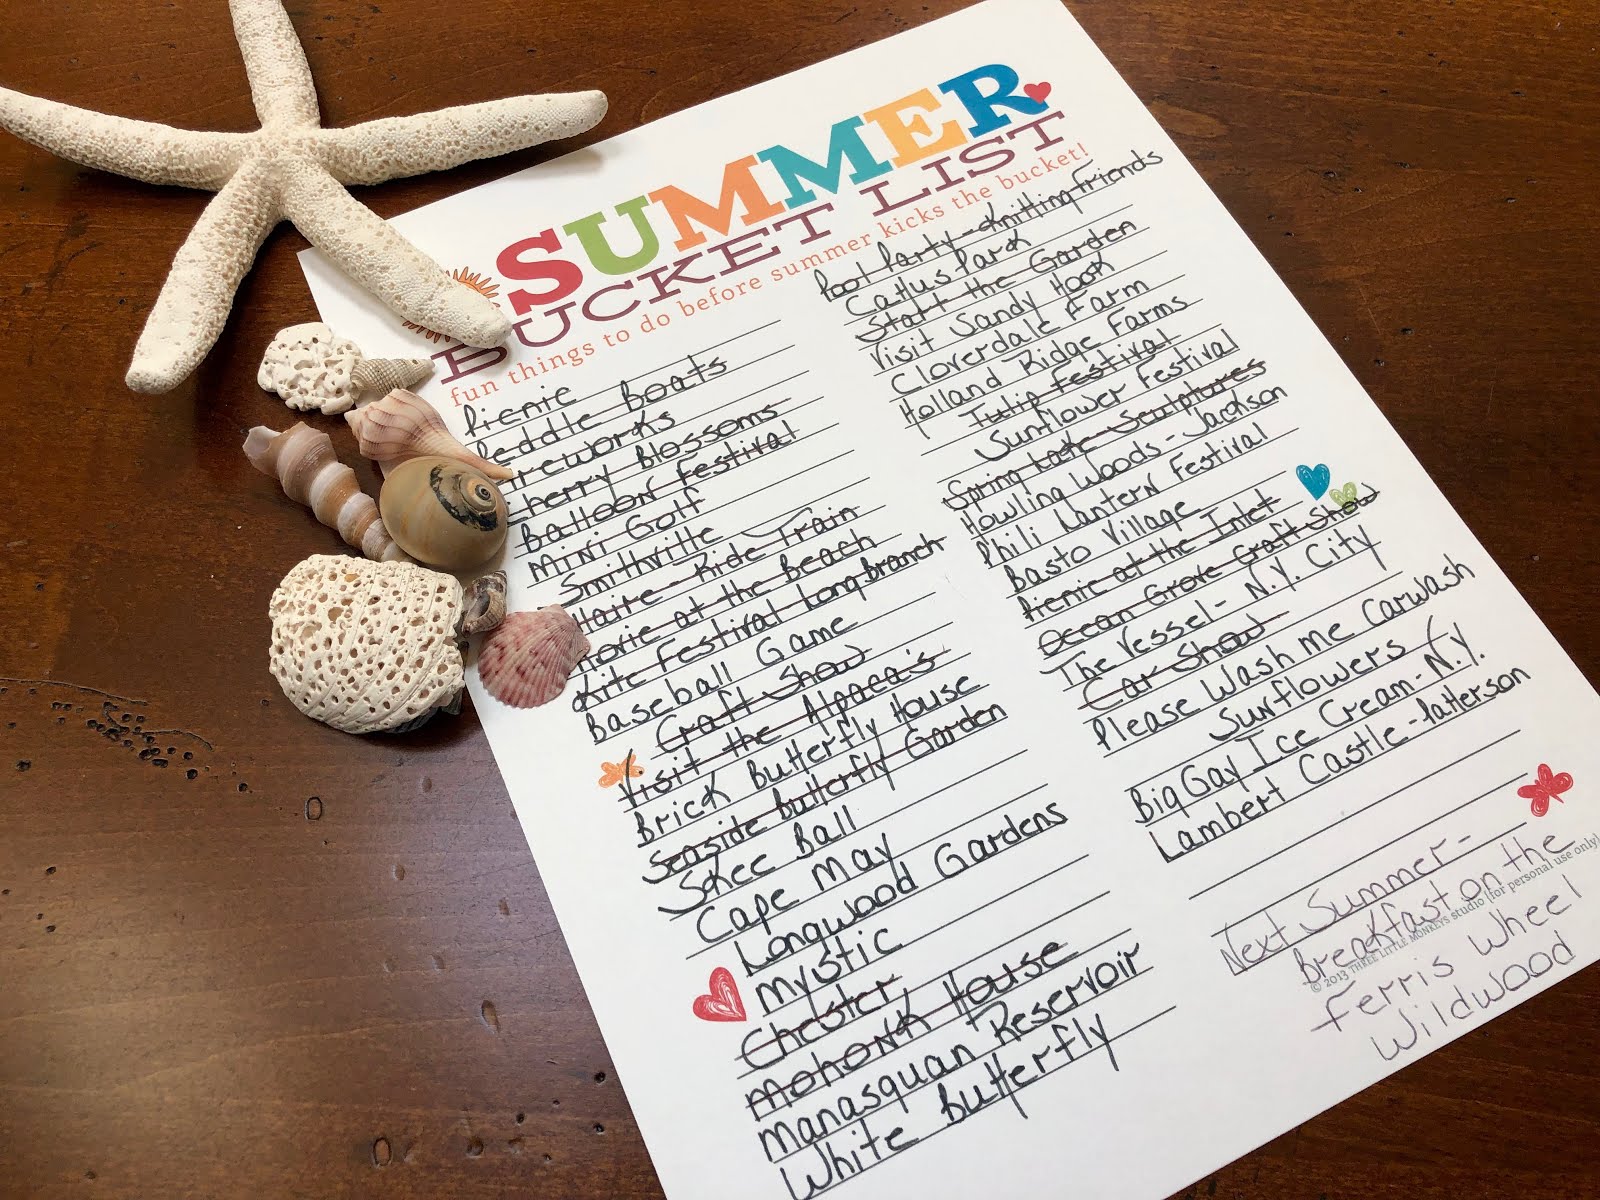 SUMMER
BUCKET LIST
fun things to do before summer kicks the bucket!
Picnic
Peddle Boats
Fireworks
Cherry Blossoms
Balloon Festival
Mini Golf
Smithville
Haite - Ride Train
Movie at the Beach
Kite Festival Long Branch
Baseball Game
Craft Show
Visit the Alpaca's
Brick Butterfly House
Seaside Butterfly Garden
Skee Ball
Cape May
Longwood Gardens
Mystic
Chester
Mohonk House
Manasquan Reservoir
White Butterfly
Pool Party - Knitting Friends
Cattus Park
Start the Garden
Visit Sandy Hook
Cloverdale Farm
Holland Ridge Farms
Tulip Festival
Sunflower Festival
Spring Lake Sculptures
Howling Woods - Jackson
Phili Lantern Festival
Basto Village
Picnic at the Inlet
Ocean Grove Craft Show
The Vessel - N.Y. City
Car Show
Please Wash me Carwash
Sunflowers
Big Gay Ice Cream - N.Y.
Lambert Castle - Patterson
Next Summer -
Breakfast on the
© 2013 THREE LITTLE MONKEYS studio {for personal use only}
Ferris Wheel
Wildwood